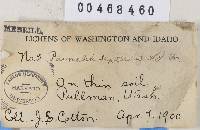 00468460
MERRILL
LICHENS OF WASHINGTON AND IDAHO
No. 3 Parmelia
On thin soil
Pullman, Wash.
Coll. J. S. Cotton. Apr 7, 1900